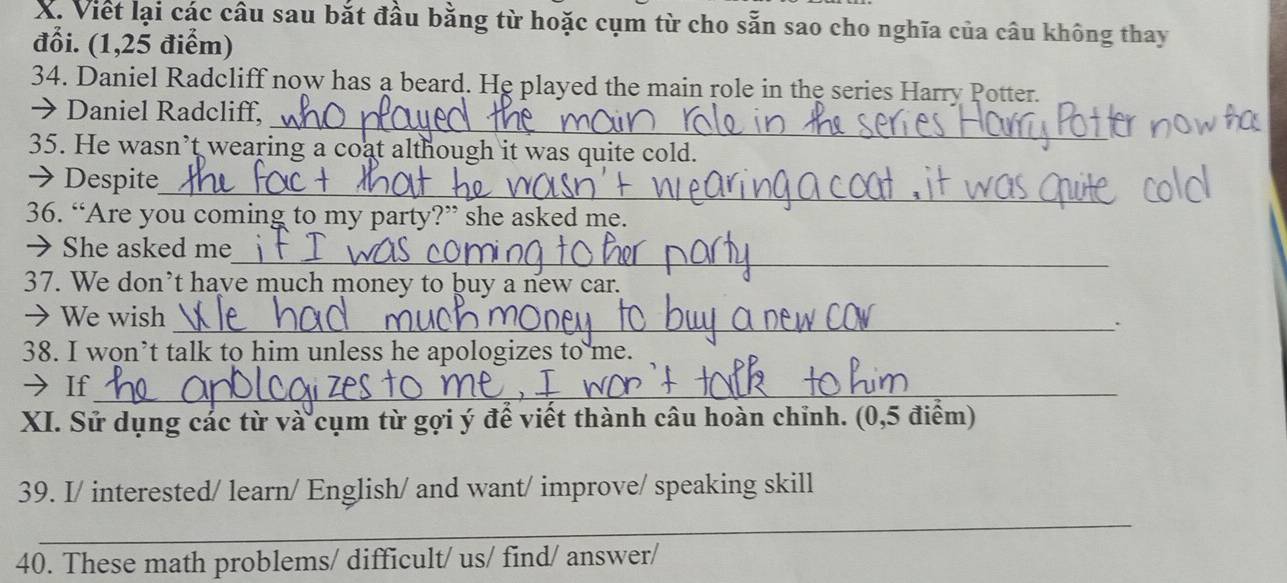 X. Viết lại các câu sau bắt đầu bằng từ hoặc cụm từ cho sẵn sao cho nghĩa của câu không thay
đổi. (1,25 điểm)
34. Daniel Radcliff now has a beard. He played the main role in the series Harry Potter.
→ Daniel Radcliff, who played the main role in the series Harry Potter now ha
35. He wasn't wearing a coat although it was quite cold.
→ Despite the fact that he wasn't wearing a coat, it was quite cold
36. “Are you coming to my party?” she asked me.
→ She asked me if I was coming to her party
37. We don't have much money to buy a new car.
→ We wish We had much money to buy a new car.
38. I won't talk to him unless he apologizes to me.
→ If he apologizes to me, I won't talk to him
XI. Sử dụng các từ và cụm từ gợi ý để viết thành câu hoàn chỉnh. (0,5 điểm)
39. I/ interested/ learn/ English/ and want/ improve/ speaking skill
40. These math problems/ difficult/ us/ find/ answer/